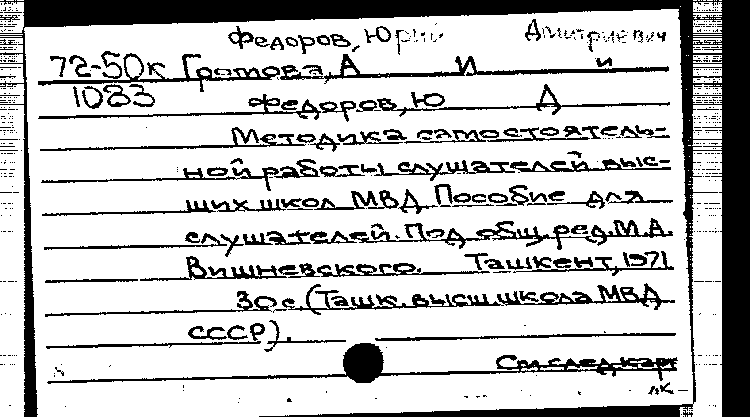 Федоров, Юрий Дмитриевич
72-50к Громова, А И и
1083 Федоров, Ю Д
Методика самостоятель-
ной работы слушателей выс-
ших школ МВД Пособие для
слушателей. Под общ. ред. М.А.
Вишневского. Ташкент, 1971
30 с. (Ташк. высш. школа МВД
СССР).
См. след. карт
лк